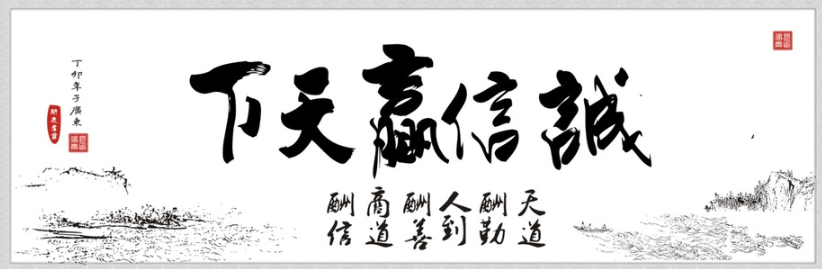 誠信贏天下
天道
酬勤
人到
酬善
商道
酬信
丁卯年于廣東